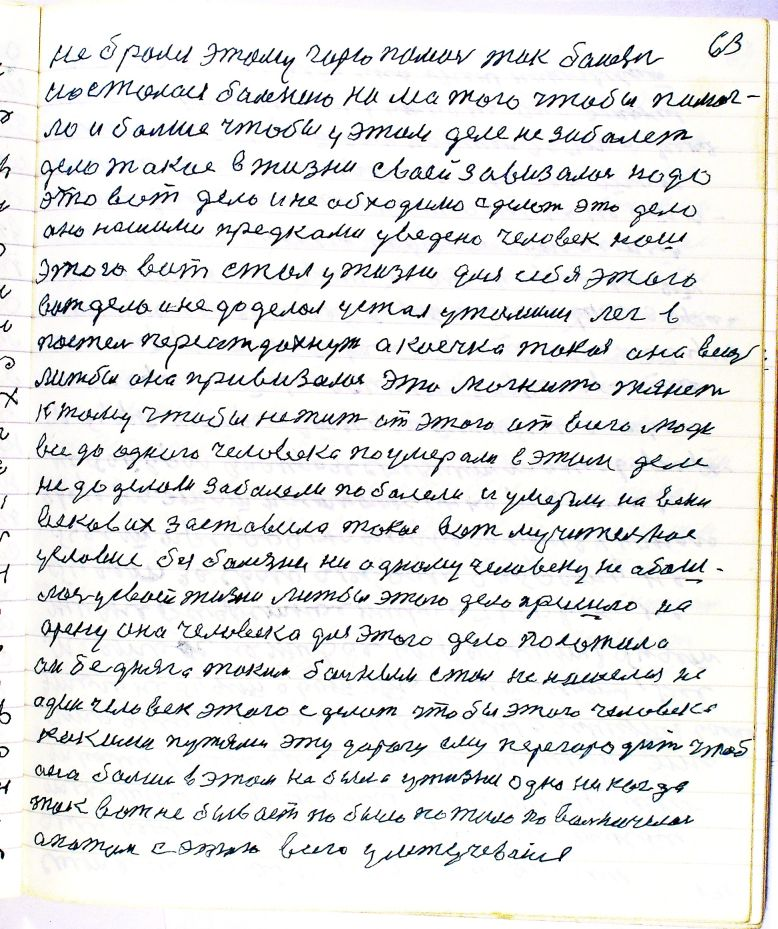 63
не брали этому чаго помоч так
и осталом на ма того чтобы памог-
ло и болше чтобы у этом деле не забалет
дело такое в жизни своей завизалоя надо
это вот дело и не обходимо сделат это дело
оно нашими предками уведено человек наш
этого вот стал у жизни для себя этого
вот дело и не доделал устал утомили лег в
постел а коечка такая она
литбы она привизалоя это магнито тянет
к тому чтобы не жит от этого от всего люди
все до одного человека поумерали в этом деле
не доделали забалели поболели и умерли на веки
вековых заставила такое вот мучителное
условие бз балезни ни одному человеку не абаш-
лоя у своей жизни литбы этого дело пришло на
арену она человека для этого дело положила
он бедняга таким болным стал не нашелоя не
один человек этого сделат чтобы этого человека
какими путями эту дорогу ему перегородит чтоб
она болше в этом не была у жизни одно никогда
так вот не бывает по было по жило
а потом с этого всего улетучеваися